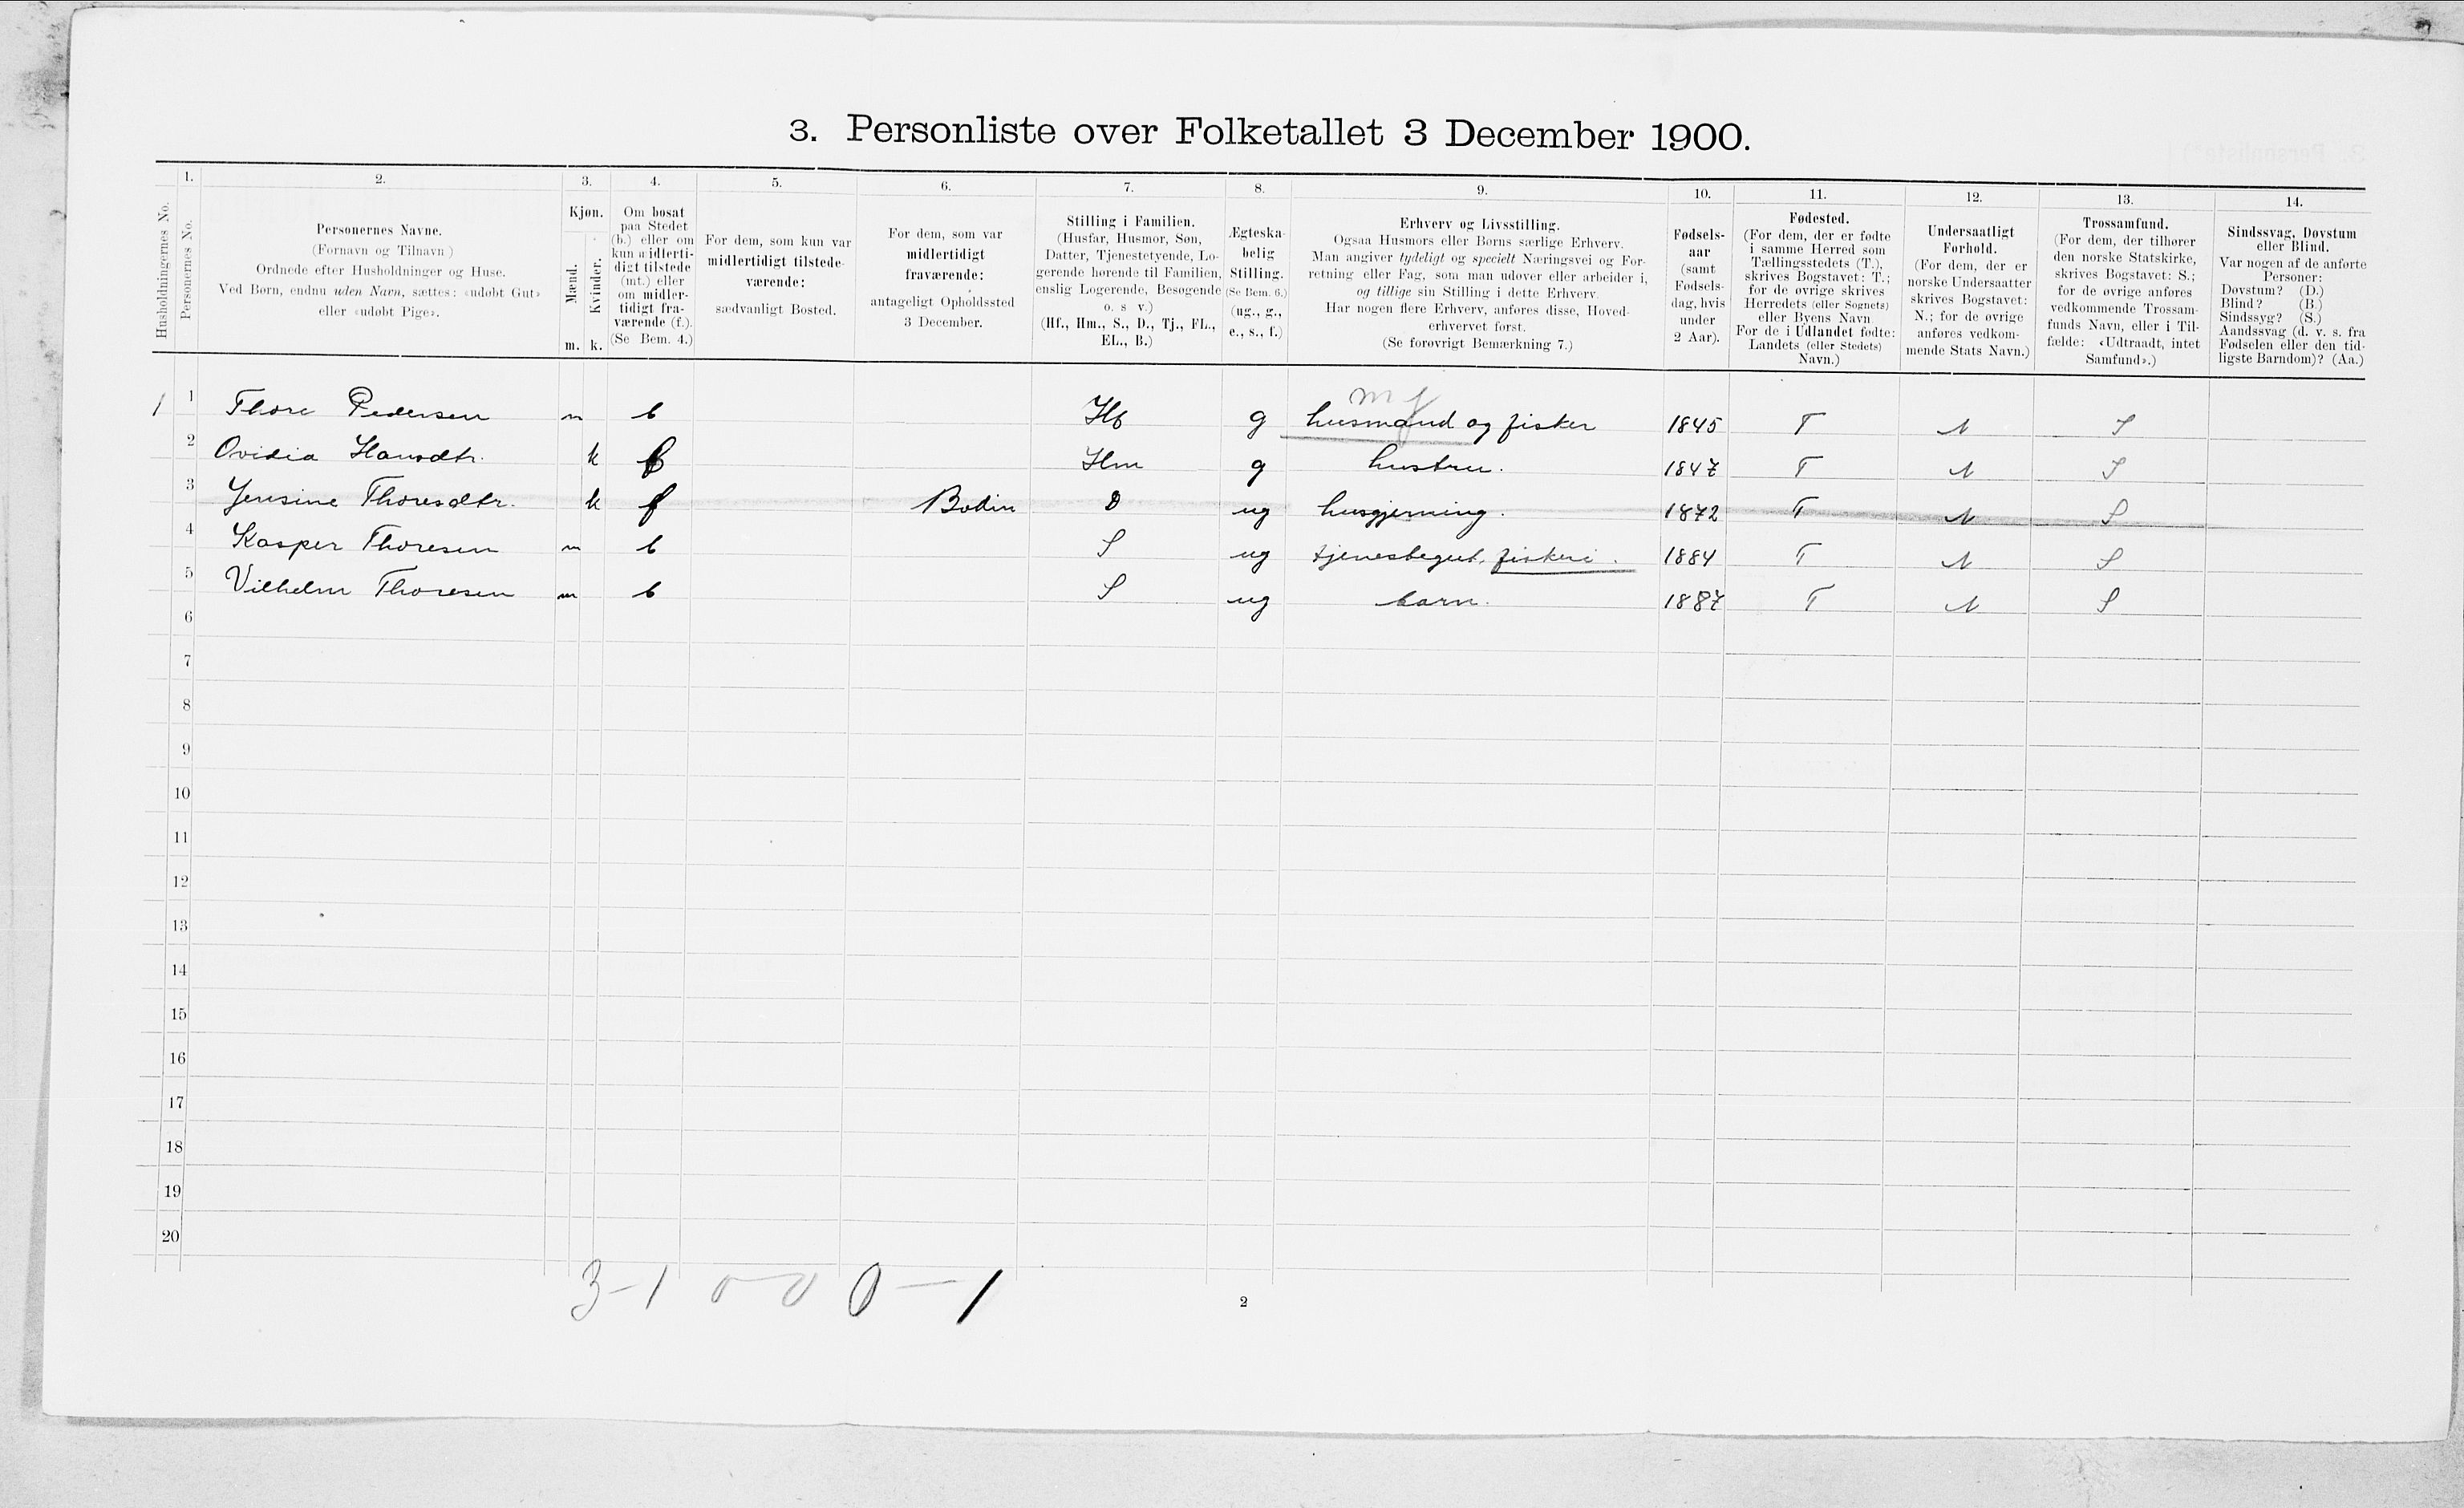 3. Personliste over Folketallet 3 December 1900.
Husholdningernes No.
1.
Personernes No.
2.
Personernes Navne.
(Fornavn og Tilnavn)
Ordnede efter Husholdninger og Huse.
Ved Børn, endnu uden Navn, sættes: «udøbt Gut»
eller «udøbt Pige».
3.
Kjøn.
Mænd.
Kvinder.
m. k.
4.
Om bosat
paa Stedet
(b.) eller om
kun midlerti-
digt tilstede
(mt.) eller
om midler-
tidigt fra-
værende (f.).
(Se Bem. 4.)
5.
For dem, som kun var
midlertidigt tilstede-
værende:
sædvanligt Bosted.
6.
For dem, som var
midlertidigt
fraværende:
antageligt Opholdssted
3 December.
7.
Stilling i Familien.
(Husfar, Husmor, Søn,
Datter, Tjenestetyende, Lo-
gerende hørende til Familien,
enslig Logerende, Besøgende
o. s v.)
(Hf., Hm., S., D., Tj., FL.,
EL., B.)
8.
Ægteska-
belig
Stilling.
(Se Bem. 6.)
(ug., g.,
e., s., f.)
9.
Erhverv og Livsstilling.
Ogsaa Husmors eller Børns særlige Erhverv.
Man angiver tydeligt og specielt Næringsvei og For-
retning eller Fag, som man udøver eller arbeider i,
og tillige sin Stilling i dette Erhverv.
Har nogen flere Erhverv, anføres disse, Hoved-
erhvervet først.
(Se forøvrigt Bemærkning 7.)
10.
Fødsels-
aar
(samt
Fødsels-
dag, hvis
under
2 Aar).
11.
Fødested.
(For dem, der er fødte
i samme Herred som
Tællingsstedets (T.),
skrives Bogstavet: T.;
for de øvrige skrives
Herredets (eller Sognets)
eller Byens Navn
For de i Udlandet fødte:
Landets (eller Stedets)
Navn.)
12.
Undersaatligt
Forhold.
(For dem, der er
norske Undersaatter
skrives Bogstavet:
N.; for de øvrige
anføres vedkom-
mende Stats Navn.)
13.
Trossamfund.
(For dem, der tilhører
den norske Statskirke,
skrives Bogstavet: S.;
for de øvrige anføres
vedkommende Trossam-
funds Navn, eller i Til-
fælde: «Udtraadt, intet
Samfund».)
14.
Sindssvag, Døvstum
eller Blind.
Var nogen af de anførte
Personer:
Døvstum? (D.)
Blind? (B.)
Sindssyg? (S.)
Aandssvag (d. v. s. fra
Fødselen eller den tid-
ligste Barndom)? (Aa.)
mf
1 1 Thore Pedersen m b Hf g husmand og fisker 1845 T N S
2 Ovidia Hansdtr. k b Hm g hustru. 1847 T N S
3 Jensine Thoresdtr. k f Bodin D ug husgjerning. 1872 T N S
4 Kasper Thoresen m b S ug tjenestegut, fiskeri. 1884 T N S
5 Vilhelm Thoresen m b S ug barn. 1887 T N S
6
7
8
9
10
11
12
13
14
15
16
17
18
19
20
3-1 0 0 0-1
2